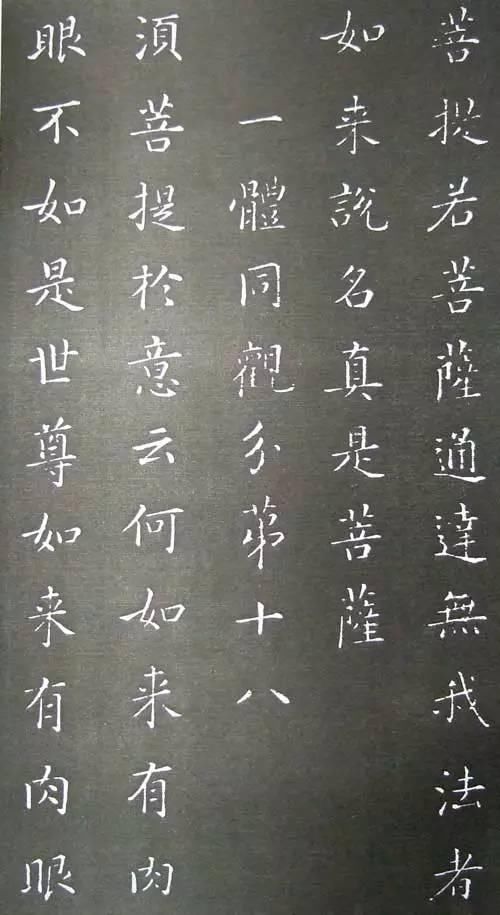 菩提若菩薩通達無我法者
如来說名真是菩薩
一體同觀分第十八
須菩提於意云何如来有肉
眼不如是世尊如来有肉眼